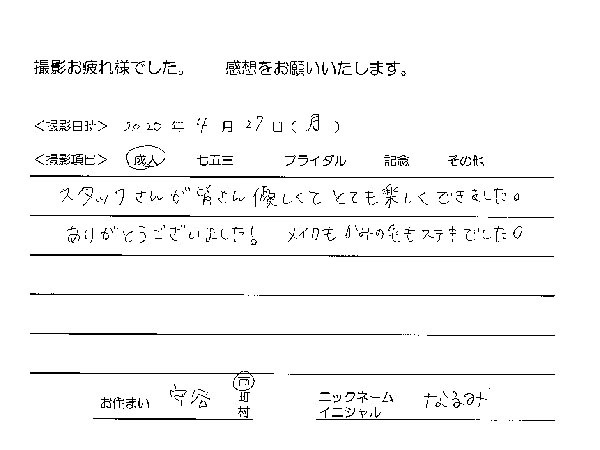 撮影お疲れ様でした。 感想をお願いいたします。
<撮影日時> 2020 年 4 月 27 日 ( 月 )
<撮影項目> 成人 七五三 ブライダル 記念 その他
スタッフさんが皆さん優しくて とても楽しくできました。
ありがとうございました! メイクもかみの毛もステキでした。
お住まい 守谷 市 町 村
ニックネーム イニシャル なるみ